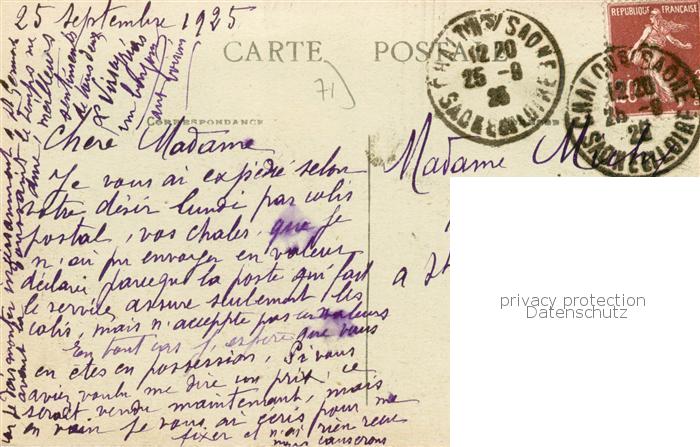 25 septembre 1925
CARTE POSTALE
71
CORRESPONDANCE
Chère Madame
Je vous ai expédié selon
votre désir lundi par colis
postal, vos chales, que je
n'ai pu envoyer en valeur
déclaré parceque la poste qui fait
le service, assure seulement les
colis, mais n'accepte pas les valeurs
En tout cas j'espère que vous
en êtes en possession, Si vous
aviez voulu me dire un prix, ce
serait vendu maintenant, mais
en vain je vous ai écris pour me
fixer et n'ai rien reçu
nous causerons
meilleurs
sentiments
CHALON S/ SAONE
12 20
25 - 9
25
SAONE ET LOIRE
REPUBLIQUE FRANÇAISE
CHALON S/ SAONE
12 20
25 - 9
25
SAONE ET LOIRE
Madame
a St
privacy protection
Datenschutz